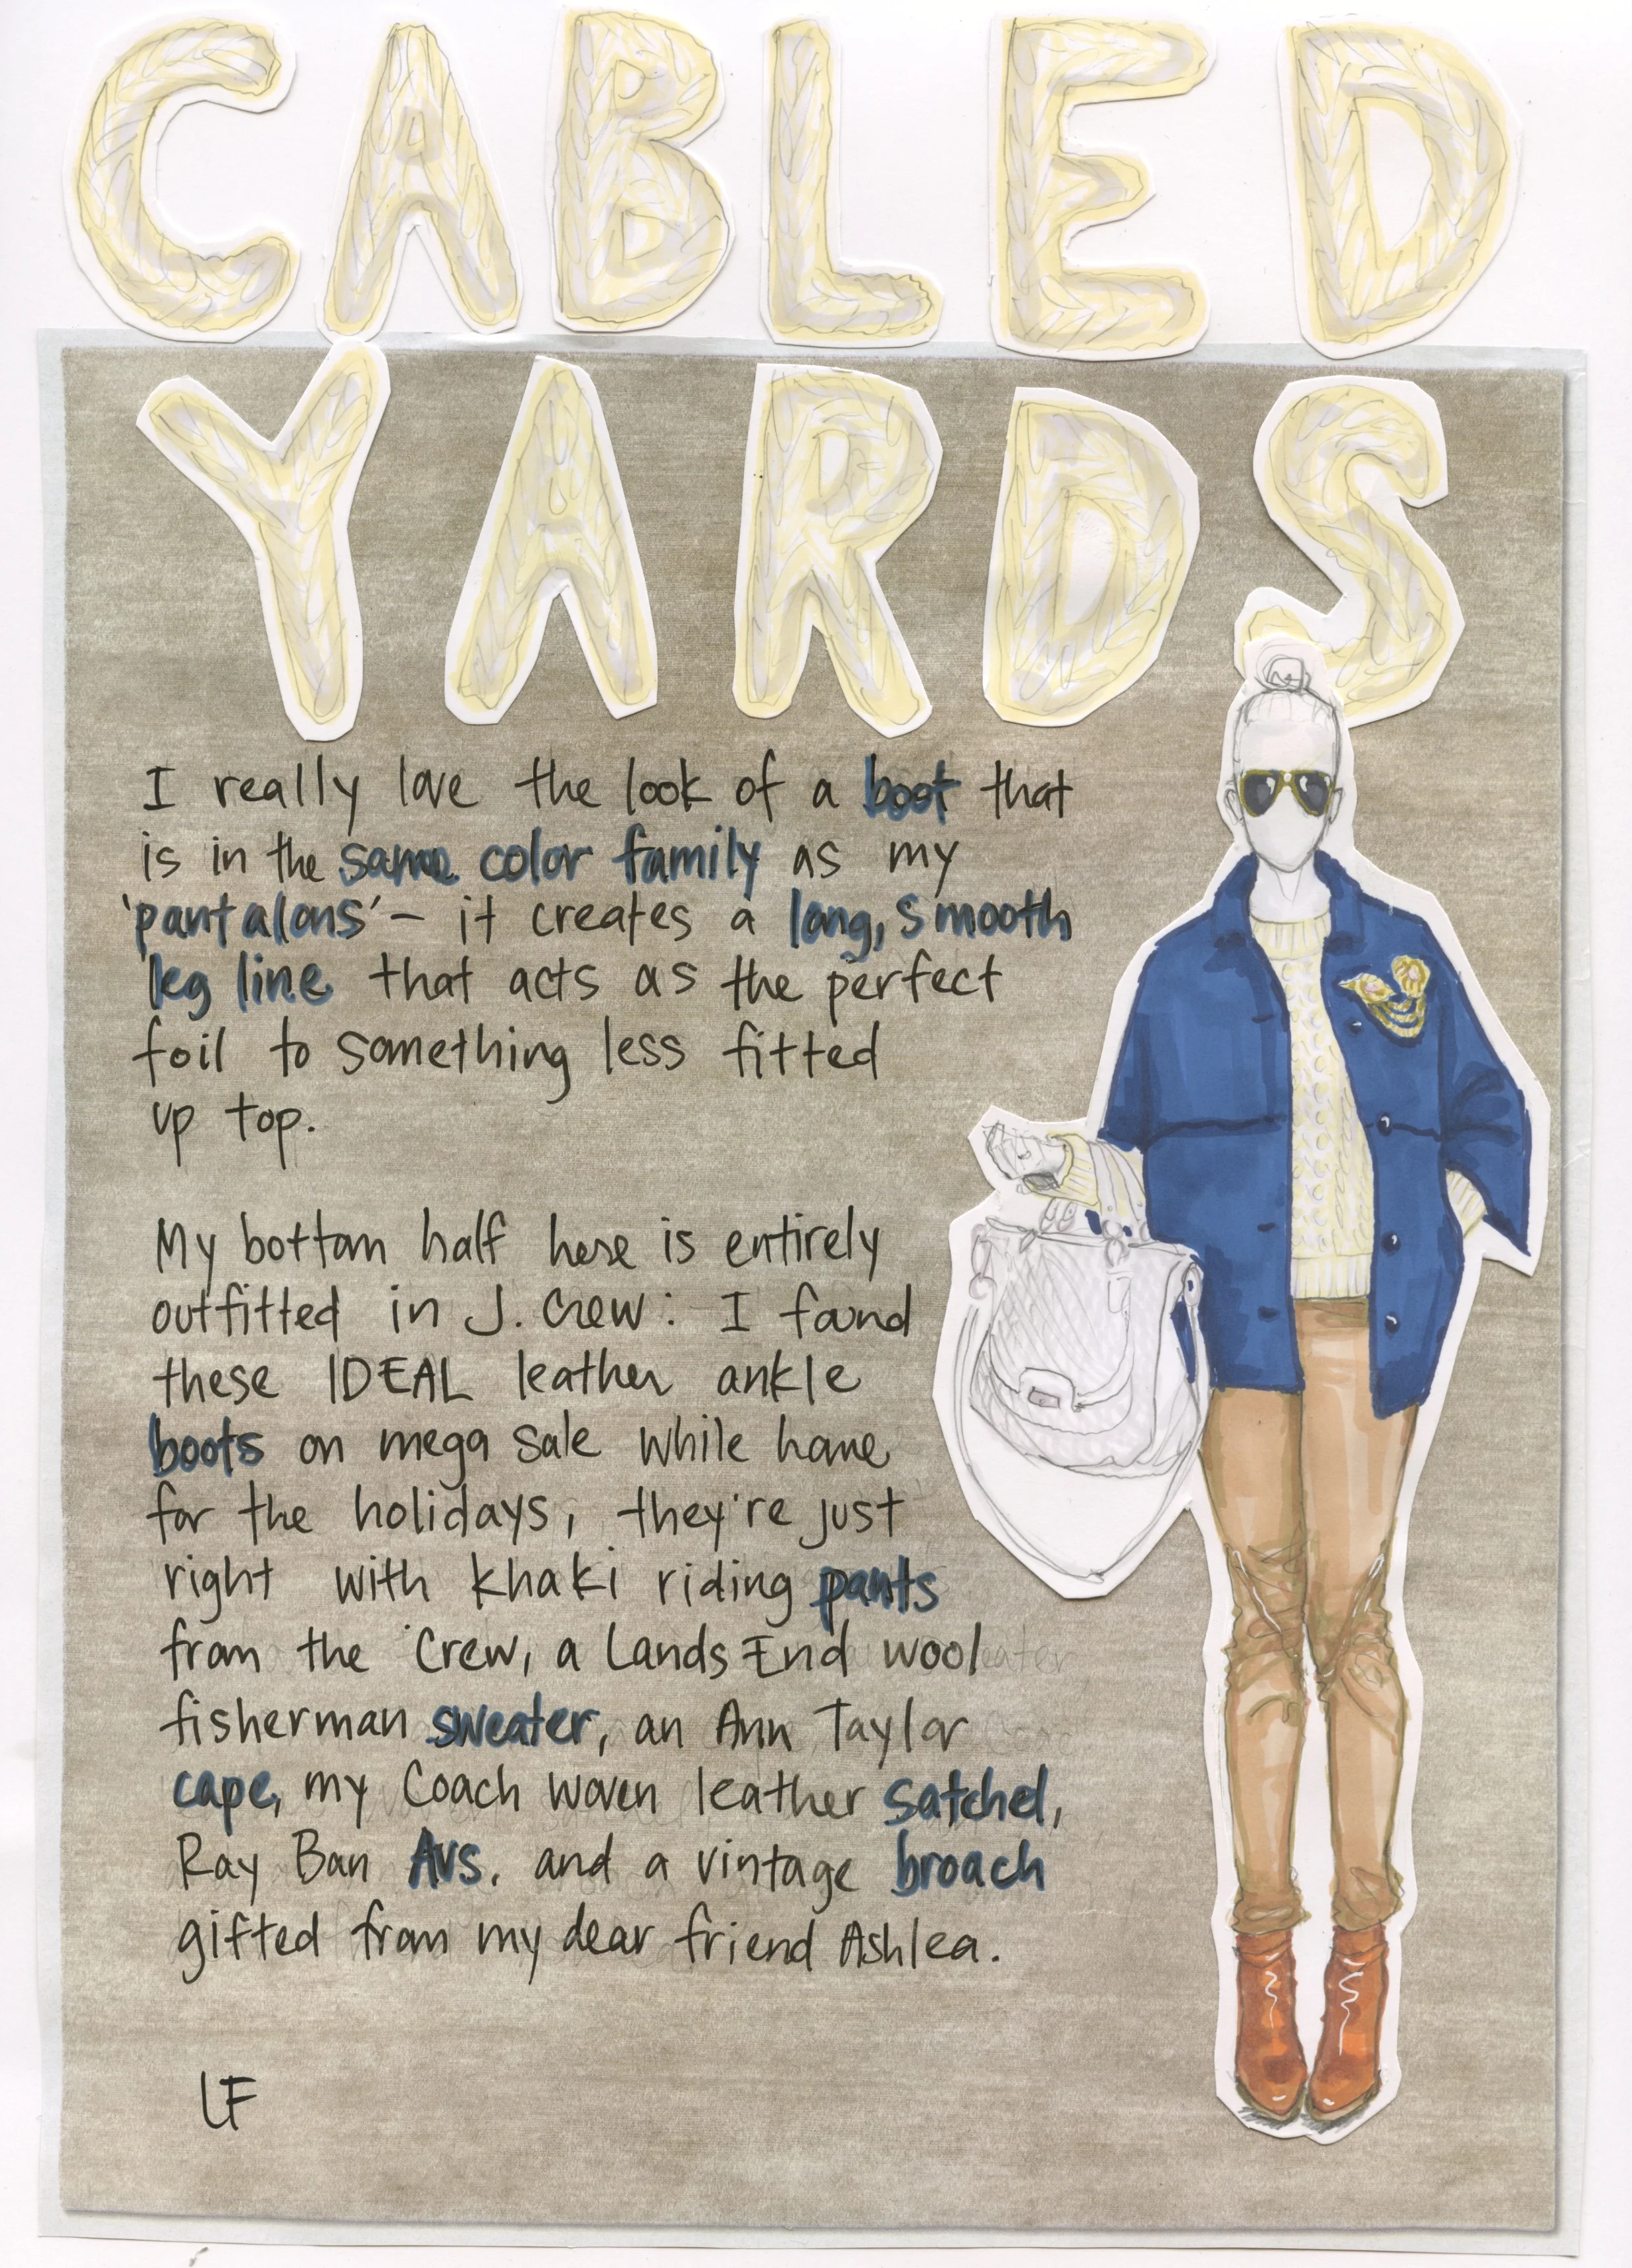 CABLED
YARDS
I really love the look of a boot that
is in the same color family as my
'pantalons' – it creates a long, smooth
leg line that acts as the perfect
foil to something less fitted
up top.
My bottom half here is entirely
outfitted in J. Crew: I found
these IDEAL leather ankle
boots on mega sale while home
for the holidays, they're just
right with khaki riding pants
from the 'Crew, a Lands End wool
fisherman sweater, an Ann Taylor
cape, my Coach woven leather satchel,
Ray Ban Avs. and a vintage broach
gifted from my dear friend Ashlea.
LF